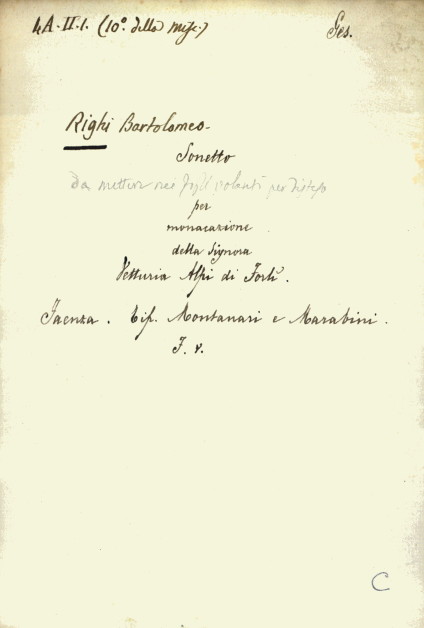 4A-II.1. (10º. della misc.) Ges.
Righi Bartolomeo-
Sonetto
Da mettere nei fogli volanti per disteso
per
monacazione
della Signora
Vetturia Alpi di Forlì.
Faenza. Tip. Montanari e Marabini.
F. v.
C